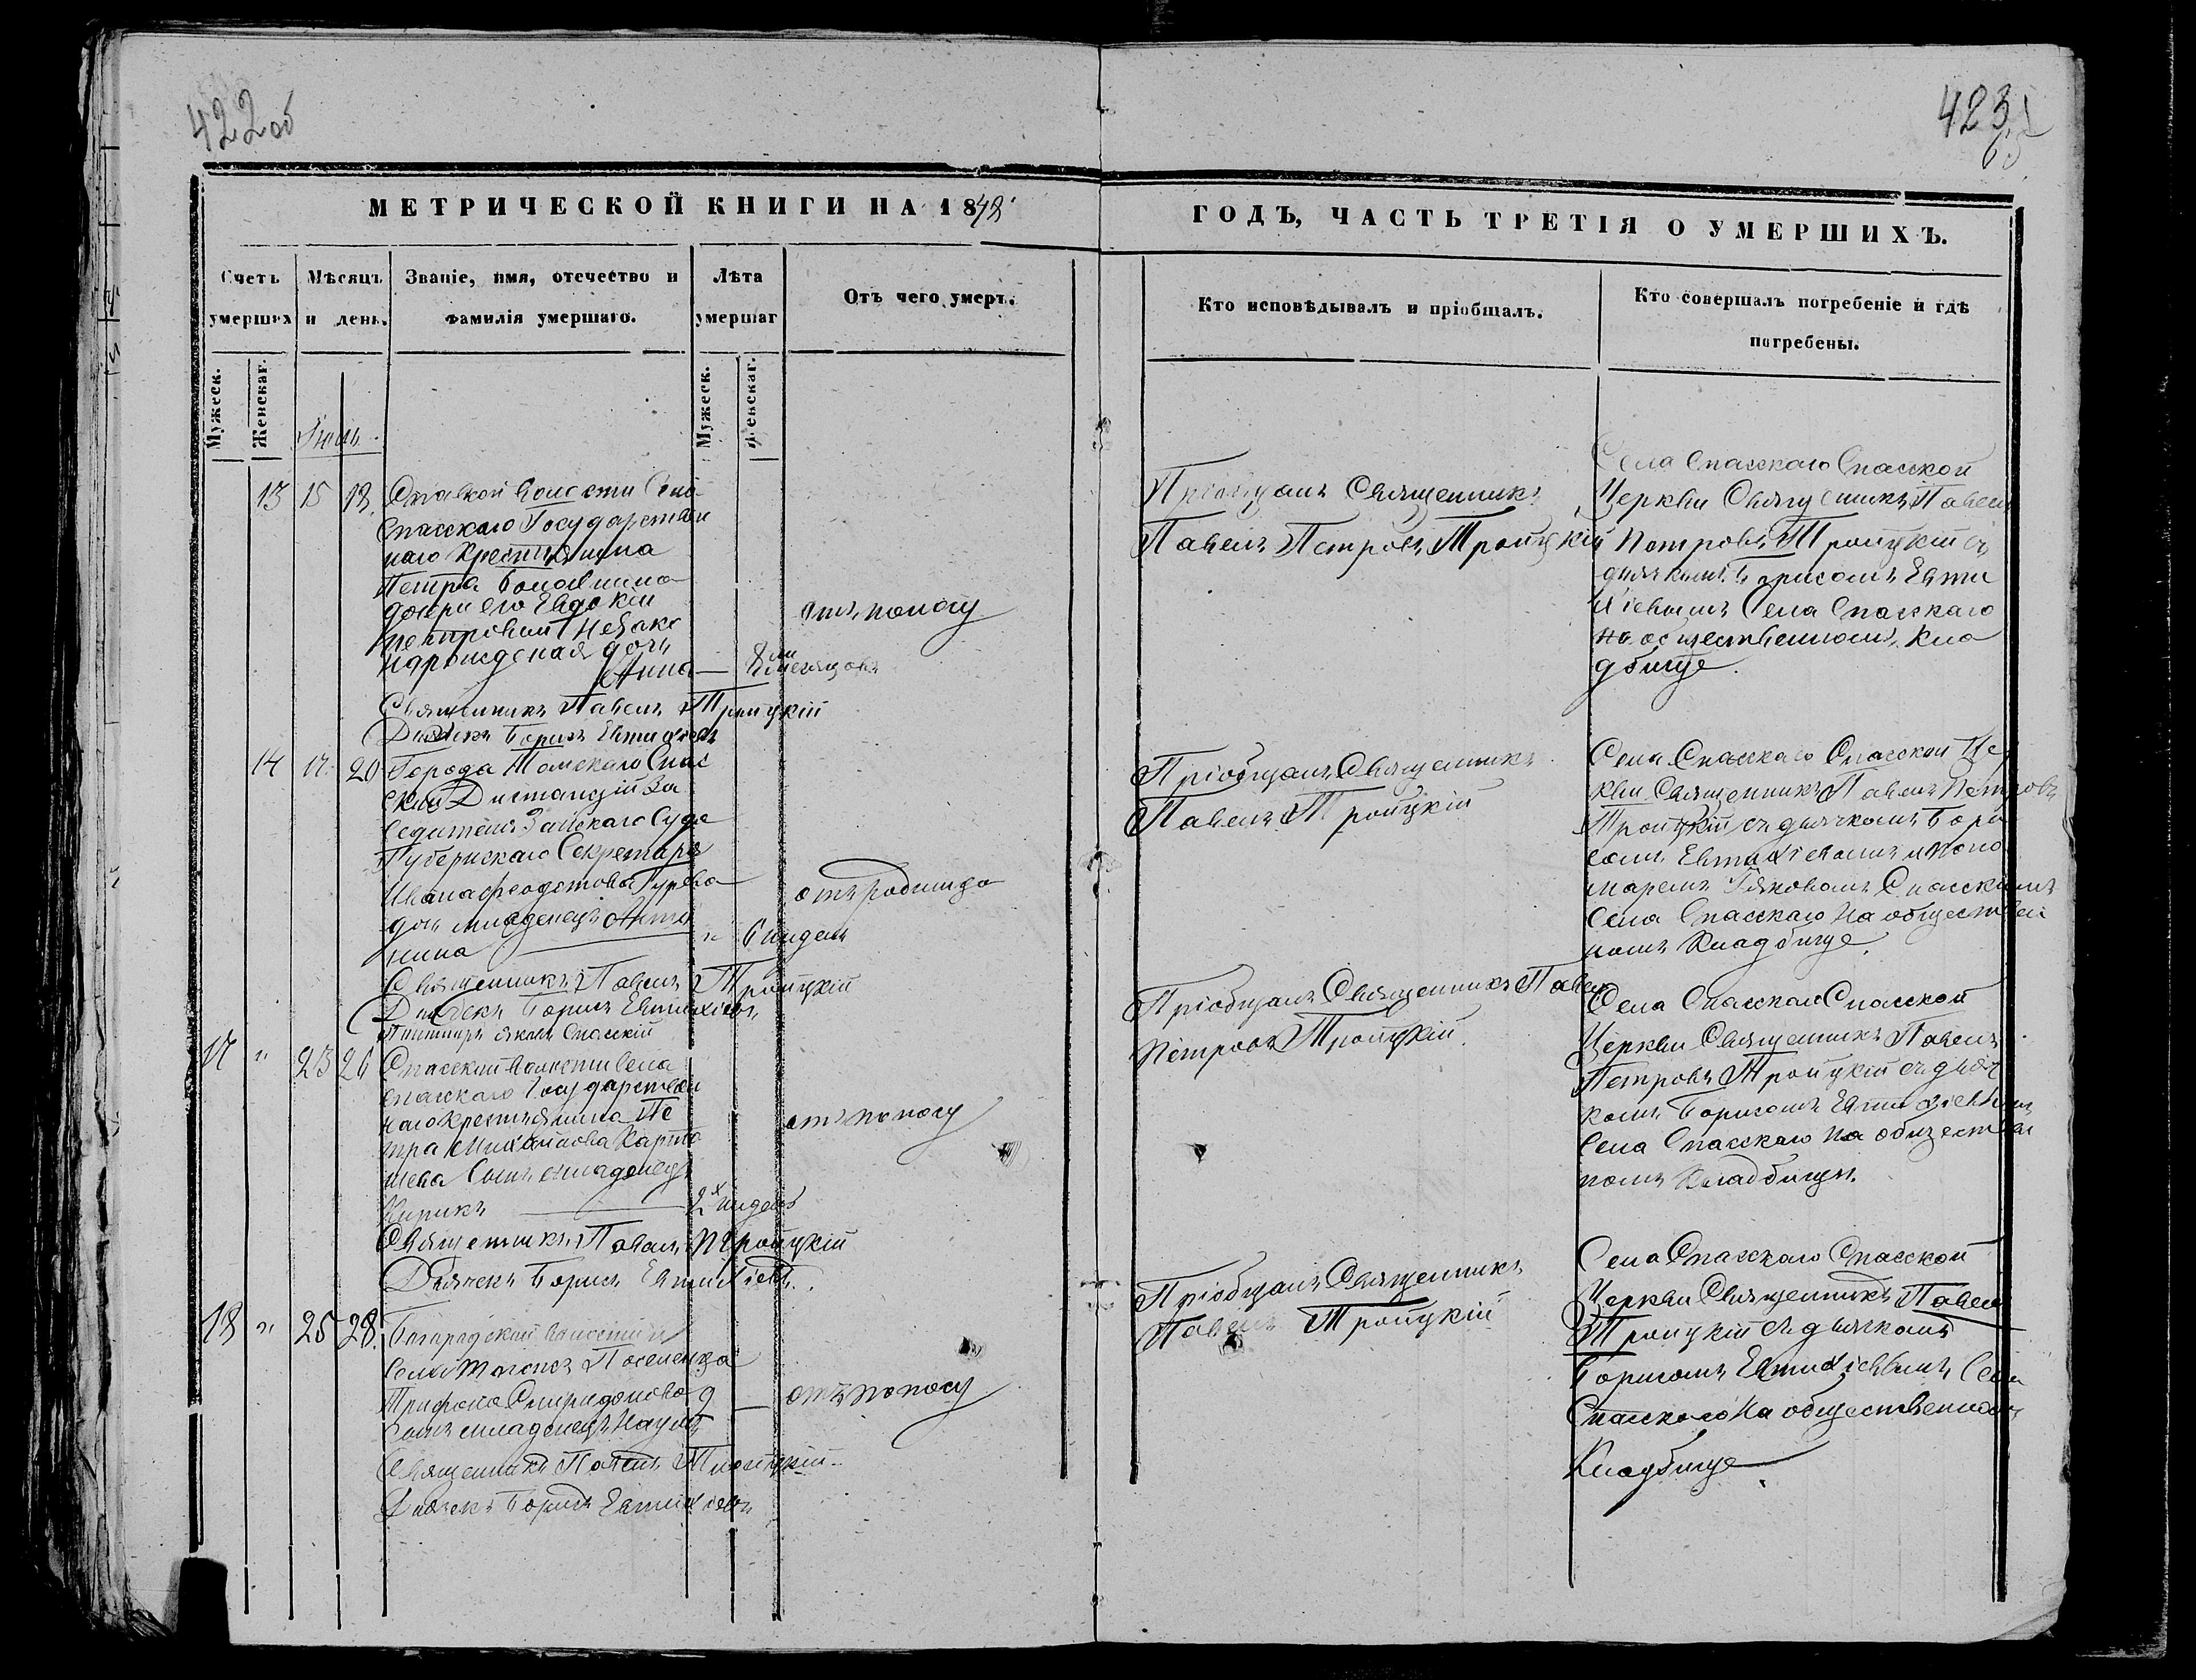 422 об
423
МЕТРИЧЕСКОЙ КНИГИ НА 1848
ГОДЪ, ЧАСТЬ ТРЕТІЯ О УМЕРШИХЪ.
Счетъ умерших
Мѣсяцъ и день.
Званіе, имя, отечество и фамилія умершаго.
Лѣта умершаг
Отъ чего умеръ.
Кто исповѣдывалъ и пріобщалъ.
Кто совершалъ погребеніе и гдѣ погребены.
Мужеск.
Женскаг.
Мужеск.
Женскаг.
Іюль
13 15 18. Спаской волости Села
Спасскаго Государствен
наго Крестьянина
Петра
дочери его Евдокіи
Петровой Незако
норожденая дочь
Анна — 8 ми месяцовъ
отъ поносу
Священникъ Павелъ Троицкій
Дьячекъ Борисъ Евтихіевъ
Пріобщалъ Священникъ
Павелъ Петровъ Троицкій
Села Спасскаго Спасской
Церкви Священникъ Павелъ
Петровъ Троицкій съ
дьячкомъ Борисомъ Евти
хіевымъ Села Спасскаго
на общественномъ кла
дбище.
14 17 20 Города Томскаго Спас
ской Дистанціи За
седателя Земскаго Суда
Губернскаго Секретаря
Ивана Феодотова Гурева
дочь младенецъ Анто
нина " 6 недель
отъ родимца
Священникъ Павелъ Троицкій
Дьячекъ Борисъ Евтихіевъ
Пономарь Яковъ Спасскій
Пріобщалъ Священникъ
Павелъ Троицкій
Села Спасскаго Спасской Це
ркви Священникъ Павелъ Петровъ
Троицкій съ дьячкомъ Бори
сомъ Евтихіевымъ и поно
маремъ Яковомъ Спасскимъ
Села Спасскаго На обществен
номъ Кладбище.
17 " 23 26 Спасской волости Села
Спасскаго Государствен
наго крестьянина Пе
тра Михайлова Карта
шева Сынъ младенецъ
Кирикъ — 2х недель
отъ поносу
Священникъ Павелъ Троицкій
Дьячекъ Борисъ Евтихіевъ.
Пріобщалъ Священникъ Павелъ
Петровъ Троицкій.
Села Спасскаго Спасской
Церкви Священникъ Павелъ
Петровъ Троицкій съ дьяч
комъ Борисомъ Евтихіевымъ
Села Спасскаго На обществен
номъ Кладбищи.
18 " 25 28. Богородской волости
Села Поселенца
Трифона Спиридонова 9 —
Сынъ младенецъ Наумъ
отъ поносу
Священникъ Павелъ Троицкій
Дьячекъ Борисъ Евтихіевъ
Пріобщалъ Священникъ
Павелъ Троицкій
Села Спасскаго Спасской
Церкви Священникъ Павелъ
Троицкій съ дьячкомъ
Борисомъ Евтихіевымъ Села
Спасскаго На общественномъ
Кладбище